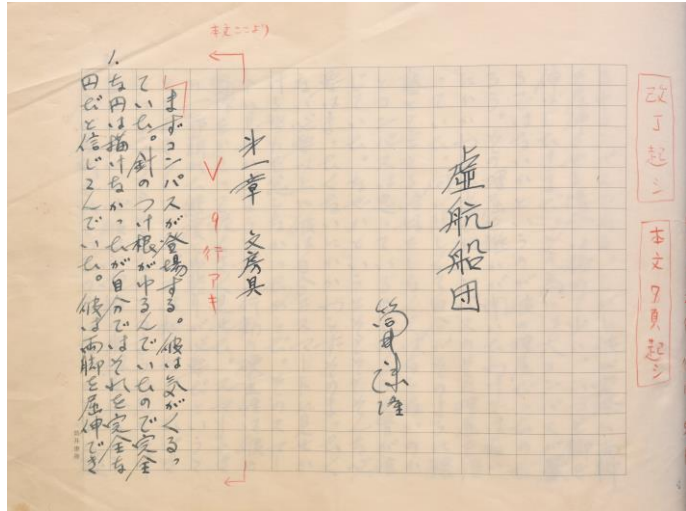 改丁起シ
本文7頁起シ
虚航船団
筒井康隆
第一章　文房具
9行アキ
本文ここより
まずコンパスが登場する。彼は気がくるっ
ていた。針のつけ根がゆるんでいたので完全
な円は描けなかったが自分ではそれを完全な
円だと信じこんでいた。彼は両脚を屈伸でき
1.